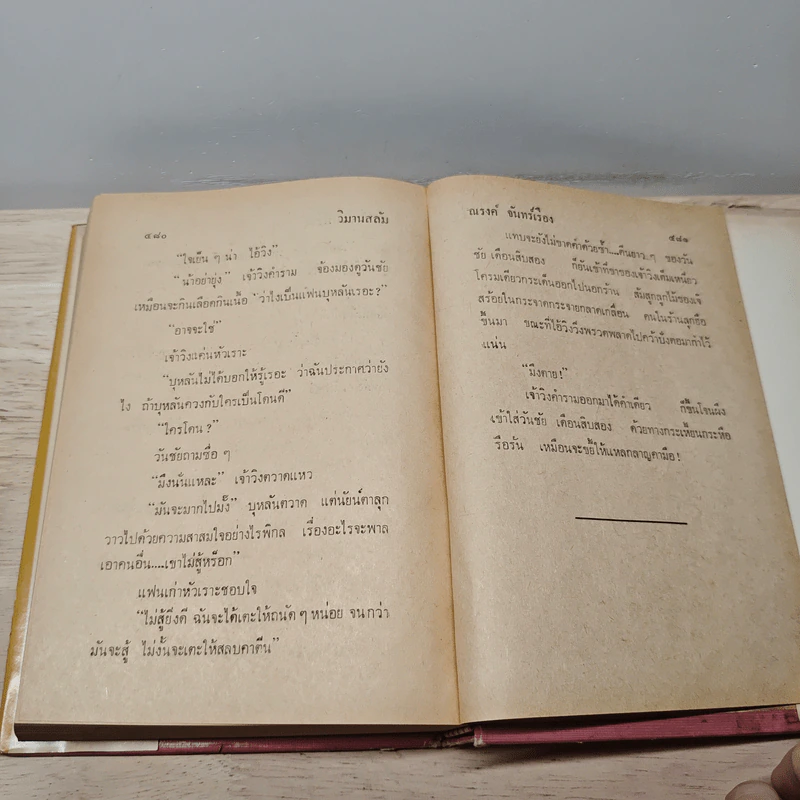 ๕๘๐ วิมานสลัม
“ใจเย็น ๆ น่า ไอ้วิง”
“น้าอย่ายุ่ง” เจ้าวิงคำราม จ้องมองดูวันชัย
เหมือนจะกินเลือดกินเนื้อ “ว่าไงเป็นแฟนบุหลันเรอะ?”
“อาจจะใช่”
เจ้าวิงแค่นหัวเราะ
“บุหลันไม่ได้บอกให้รู้เรอะ ว่าฉันประกาศว่ายัง
ไง ถ้าบุหลันควงกับใครเป็นโดนดี”
“ใครโดน?”
วันชัยถามซื่อ ๆ
“มึงนั่นแหละ” เจ้าวิงตวาดแหว
“มันจะมากไปมั้ง” บุหลันตวาด แต่นัยน์ตาลุก
วาวไปด้วยความสาสมใจอย่างไรพิกล เรื่องอะไรจะพาล
เอาคนอื่น....เขาไม่สู้หร็อก”
แฟนเก่าหัวเราะชอบใจ
“ไม่สู้ยิ่งดี ฉันจะได้เตะให้ถนัด ๆ หน่อย จนกว่า
มันจะสู้ ไม่งั้นจะเตะให้สลบคาตีน”
ณรงค์ จันทร์เรือง ๕๘๑
แทบจะยังไม่ขาดคำด้วยซ้ำ....ตีนยาว ๆ ของวัน
ชัย เดือนสิบสอง ก็ยันเข้าที่ขาของเจ้าวิงเต็มเหนี่ยว
โครมเดียวกระเด็นออกไปนอกร้าน ส้มสุกลูกไม้ของเจ๊
สร้อยในกระจาดกระจายกลาดเกลื่อน คนในร้านลุกฮือ
ขึ้นมา ขณะที่ไอ้วิงวิ่งพรวดพลาดไปคว้าบั้งตอมากำไว้
แน่น
“มึงตาย!”
เจ้าวิงคำรามออกมาได้คำเดียว ก็ขึ้นโจนผึง
เข้าใส่วันชัย เดือนสิบสอง ด้วยทางกระเหี้ยนกระหือ
รือรัน เหมือนจะขยี้ให้แหลกลาญคามือ!